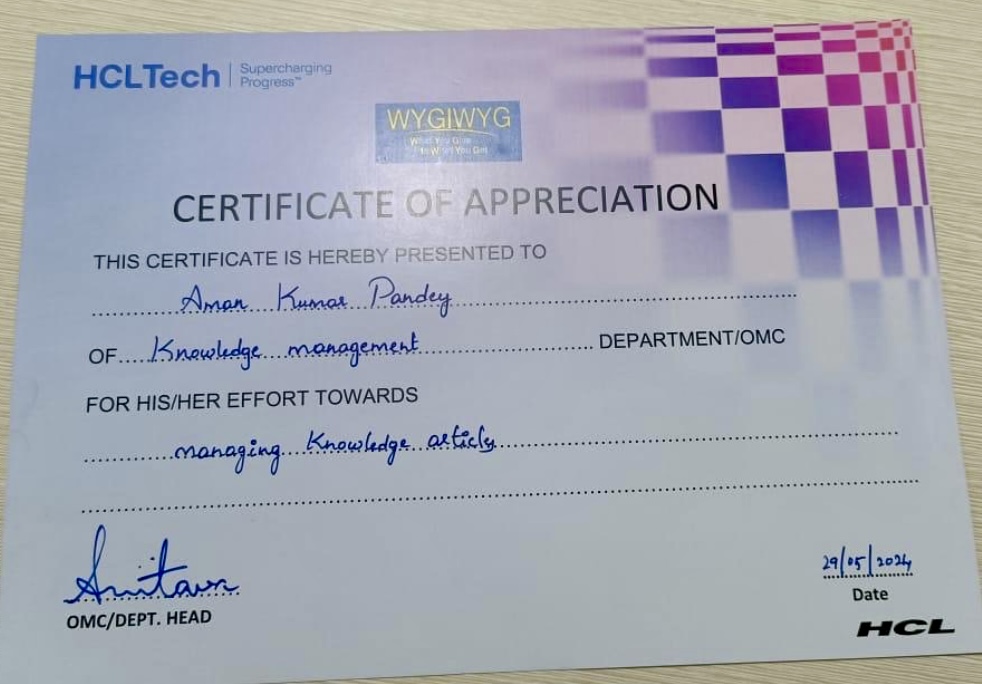 HCLTech | Supercharging
Progress™
WYGIWYG
What You Give
Is What You Get
CERTIFICATE OF APPRECIATION
THIS CERTIFICATE IS HEREBY PRESENTED TO
Aman Kumar Pandey
OF Knowledge management DEPARTMENT/OMC
FOR HIS/HER EFFORT TOWARDS
managing Knowledge articles
OMC/DEPT. HEAD
29/05/2024
Date
HCL